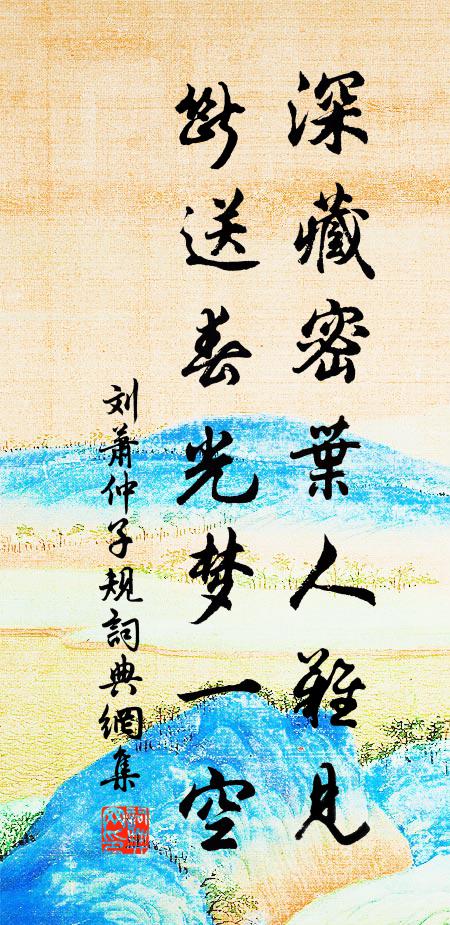 深藏密葉人難見
断送春光梦一空
刘萧仲子规詞典網集